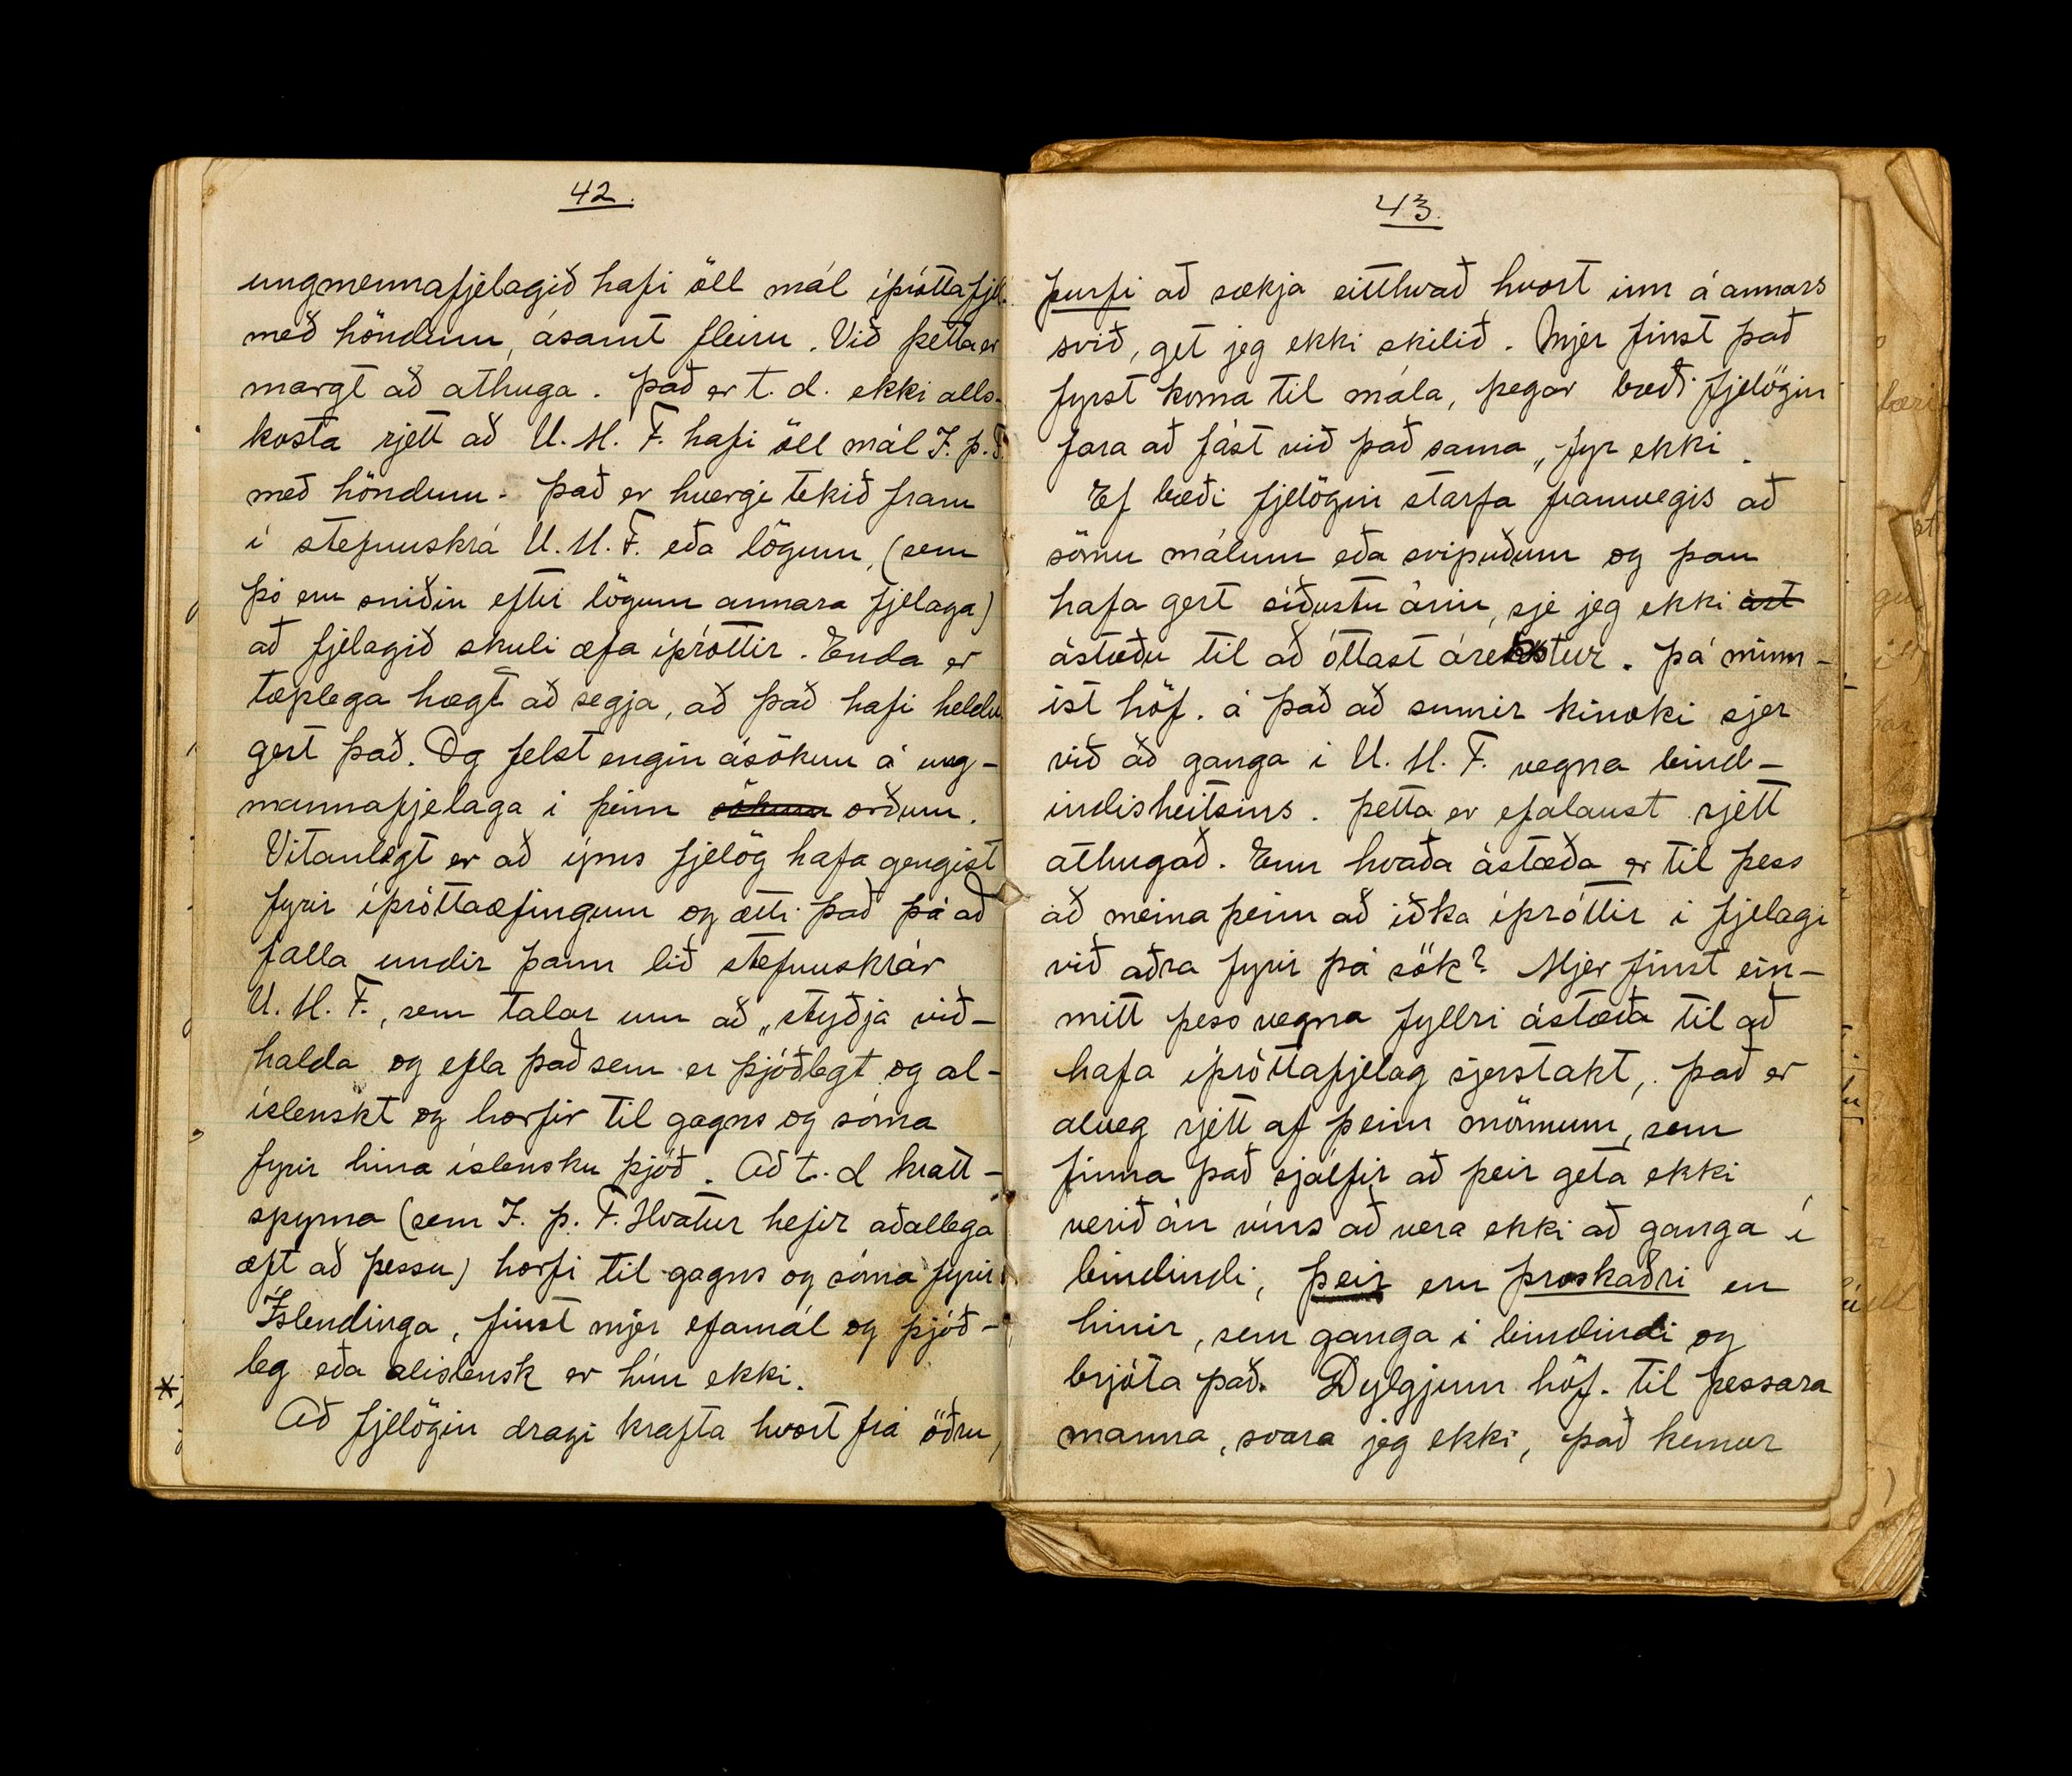 42.
ungmennafjelagið hafi öll mál íþróttafjel.
með höndum, ásamt fleiru. Við þetta er
margt að athuga. Það er t.d. ekki alls-
kosta rjett að U.M.F. hafi öll mál Í.þ.F.
með höndum. Það er hvergi tekið fram
í stefnuskrá U.M.F. eða lögum, (sem
þó eru sniðin eftir lögum annara fjelaga)
að fjelagið skuli æfa íþróttir. Enda er
tæplega hægt að segja, að það hafi heldur
gert það. Og felst engin ásökun á ung-
mannafjelaga í þeim sökum orðum.
Vitanlegt er að ýms fjelög hafa gengist
fyrir íþróttaæfingum og ætti það þá að
falla undir þann lið stefnuskrár
U.M.F., sem talar um að „styðja við-
halda og efla það sem er þjóðlegt og al-
íslenskt og horfir til gagns og sóma
fyrir hina íslensku þjóð. Að t.d knatt-
spyrna (sem Í.þ.F. Hvatur hefir aðallega
æft að þessu) horfi til gagns og sóma fyrir
Íslendinga, finst mjer efamál og þjóð-
leg eða alíslensk er hún ekki.
Að fjelögin dragi krafta hvort frá öðru,
43.
þurfi að sækja eitthvað hvort inn á annars
svið, get jeg ekki skilið. Mjer finst það
fyrst koma til mála, þegar bæði fjelögin
fara að fást við það sama, fyr ekki.
Ef bæði fjelögin starfa framvegis að
sömu málum eða svipuðum og þau
hafa gert síðustu árin, sje jeg ekki ást
ástæðu til að óttast árekstur. Þá minn-
ist höf. á það að sumir kinoki sjer
við að ganga í U.M.F. vegna bind-
indisheitsins. Þetta er efalaust rjett
athugað. Enn hvaða ástæða er til þess
að meina þeim að iðka íþróttir í fjelagi
við aðra fyrir þá sök? Mjer finst ein-
mitt þess vegna fyllri ástæða til að
hafa íþróttafjelag sjerstakt, það er
alveg rjett af þeim mönnum, sem
finna það sjálfir að þeir geta ekki
verið án víns að vera ekki að ganga í
bindindi, þeir eru þroskaðri en
hinir, sem ganga í bindindi og
brjóta það. Dylgjum höf. til þessara
manna, svara jeg ekki, það kemur